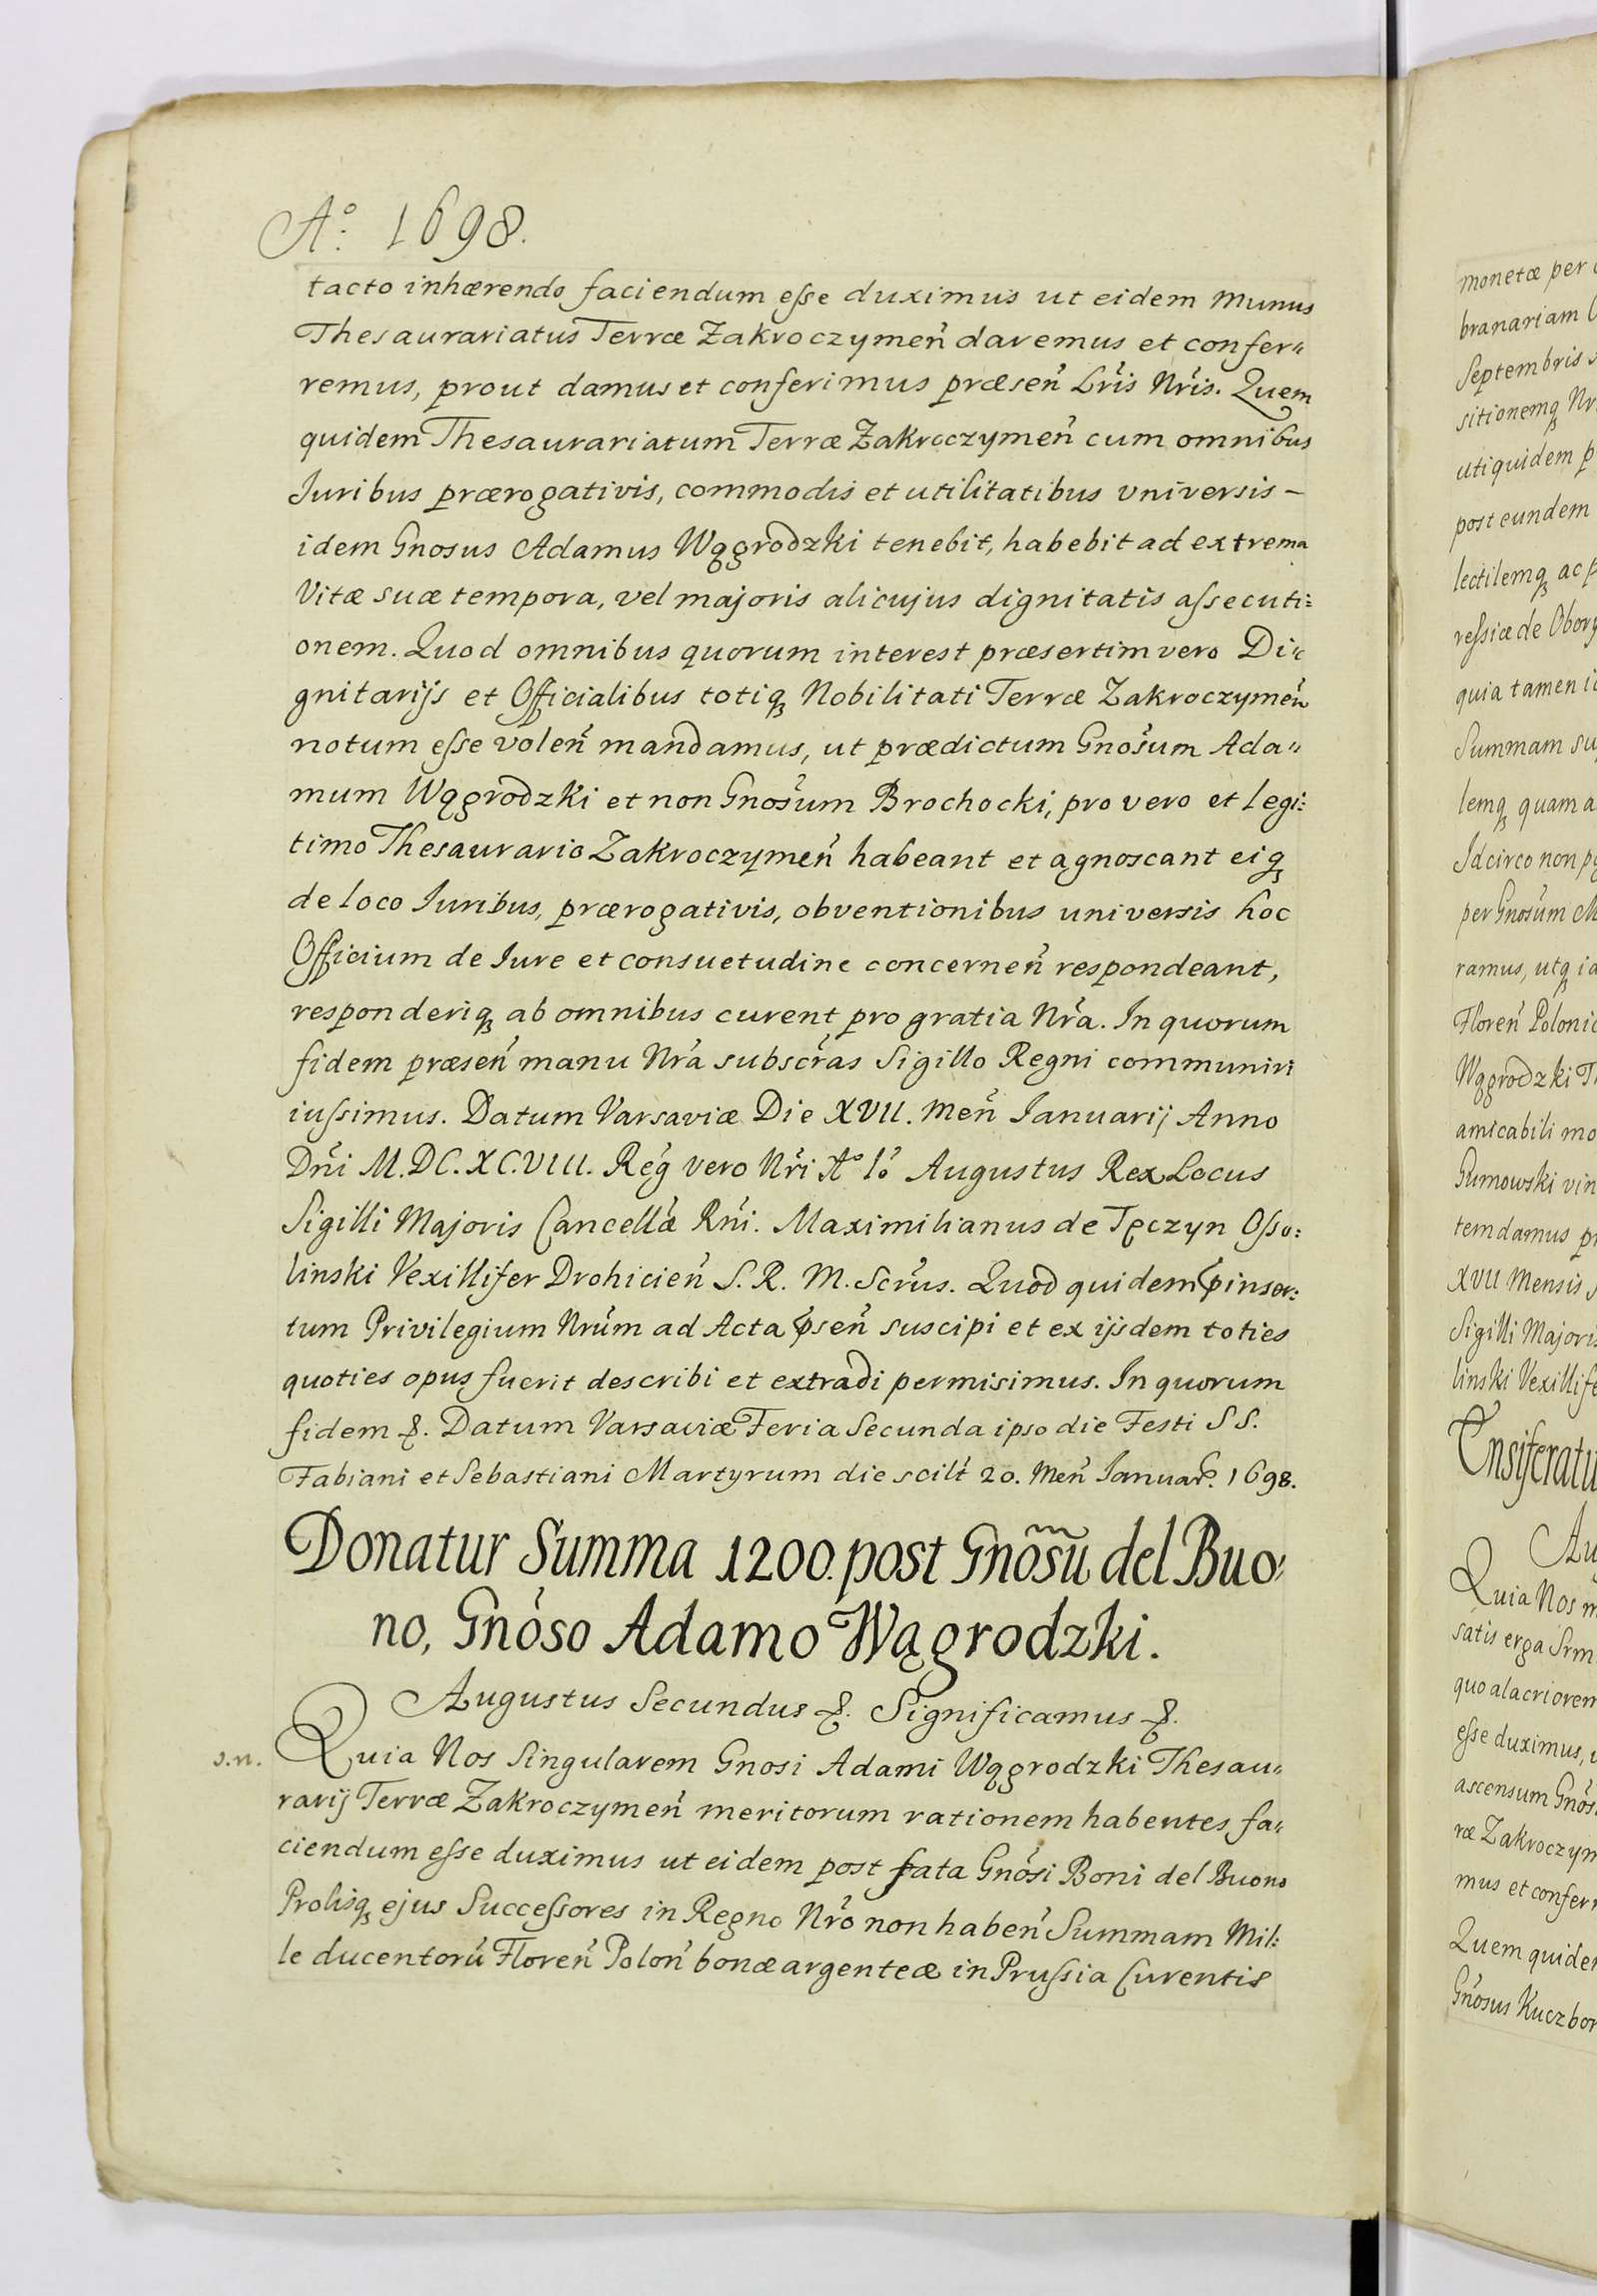 Aº: 1698.
tacto inhærendo faciendum eſse duximus ut eidem munus
Thesaurariatus Terræ Zakroczymeń daremus et confer„
remus, prout damus et conferimus præseń Lŕis Nŕis. Quem
quidem Thesaurariatum Terræ Zakroczymeń cum omnibus
Iuribus prærogativis, commodis et utilitatibus universis –
idem Gnosus Adamus Wągrodzki tenebit, habebit ad extrema
Vitæ suæ tempora, vel majoris alicujus dignitatis aſsecuti=
onem. Quod omnibus quorum interest præsertim vero Di„
gnitarijs et Officialibus totiqꝫ Nobilitati Terræ Zakroczymeń
notum eſse voleń mandamus, ut prædictum Gnośum Ada„
mum Wągrodzki et non Gnośum Brochocki, pro vero et legi:
timo Thesaurario Zakroczymeń habeant et agnoscant eiqꝫ
de loco Iuribus, prærogativis, obventionibus universis hoc
Officium de Iure et consuetudine concerneń respondeant,
responderiqꝫ ab omnibus curent pro gratia Nŕa. In quorum
fidem præseń manu Nŕa subscŕas Sigillo Regni communiri
iuſsimus. Datum Varsaviæ Die XVII. Meń Ianuarij Anno
Dńi M.DC.XC.VIII. Reǵ vero Nŕi Aº Iº Augustus Rex Locus
Sigilli Majoris Cancellæ Rńi. Maximilianus de Tęczyn Oſso:
linski Vexillifer Drohicień S. R. M. Scŕus. Quod quidem ꝓinser:
tum Privilegium Nrúm ad Acta ꝓseń suscipi et ex ijsdem toties
quoties opus fuerit describi et extradi permisimus. In quorum
fidem &. Datum Varsaviæ Feria Secunda ipso die Festi SS.
Fabiani et Sebastiani Martyrum die scilt́ 20. Meń Ianuar. 1698.
Donatur Summa 1200. post Gnõsũ del Buo:
no, Gnóso Adamo Wągrodzki.
Augustus Secundus &. Significamus &.
Quia Nos Singularem Gnosi Adami Wągrodzki Thesau„
rarij Terræ Zakroczymeń meritorum rationem habentes fa„
ciendum eſse duximus ut eidem post fata Gnósi Boni del Buono
Prolisqꝫ ejus Succeſsores in Regno Nŕo non habeń Summam Mil:
le ducentorú Floreń Poloń bonæ argenteæ in Pruſsia Curentis
monetæ per
branariam
Septembris
sitionemqꝫ
uti quidem
post eundem
lectilemqꝫ ac
reſsiæ de
quia tamen
Summam
lemqꝫ quam
Idcirco non
per Gnosúm
ramus, utqꝫ
Floreń
Wągrodzki
amicabili
Gumowski
tem damus
XVII Mensis
Sigilli
linski
Quia Nos
satis erga
quo
eſse duximus,
ascensum
ræ
mus et
Quem
Gnósus